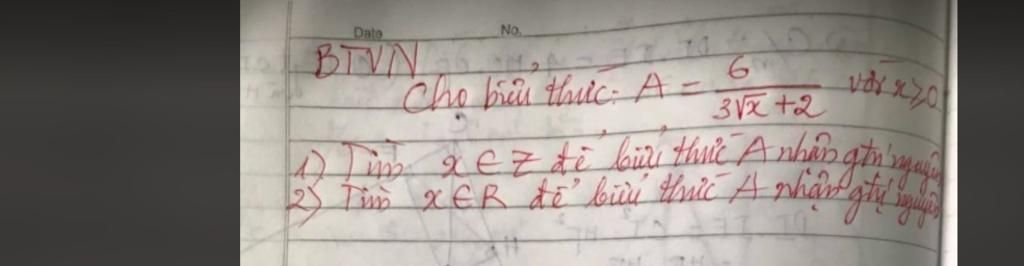 Date No.
BTVN
Cho biểu thức: A = 6/(3√x + 2) với x ≥ 0
1) Tìm x ∈ Z để biểu thức A nhận gtrị nguyên
2) Tìm x ∈ R để biểu thức A nhận gtrị nguyên